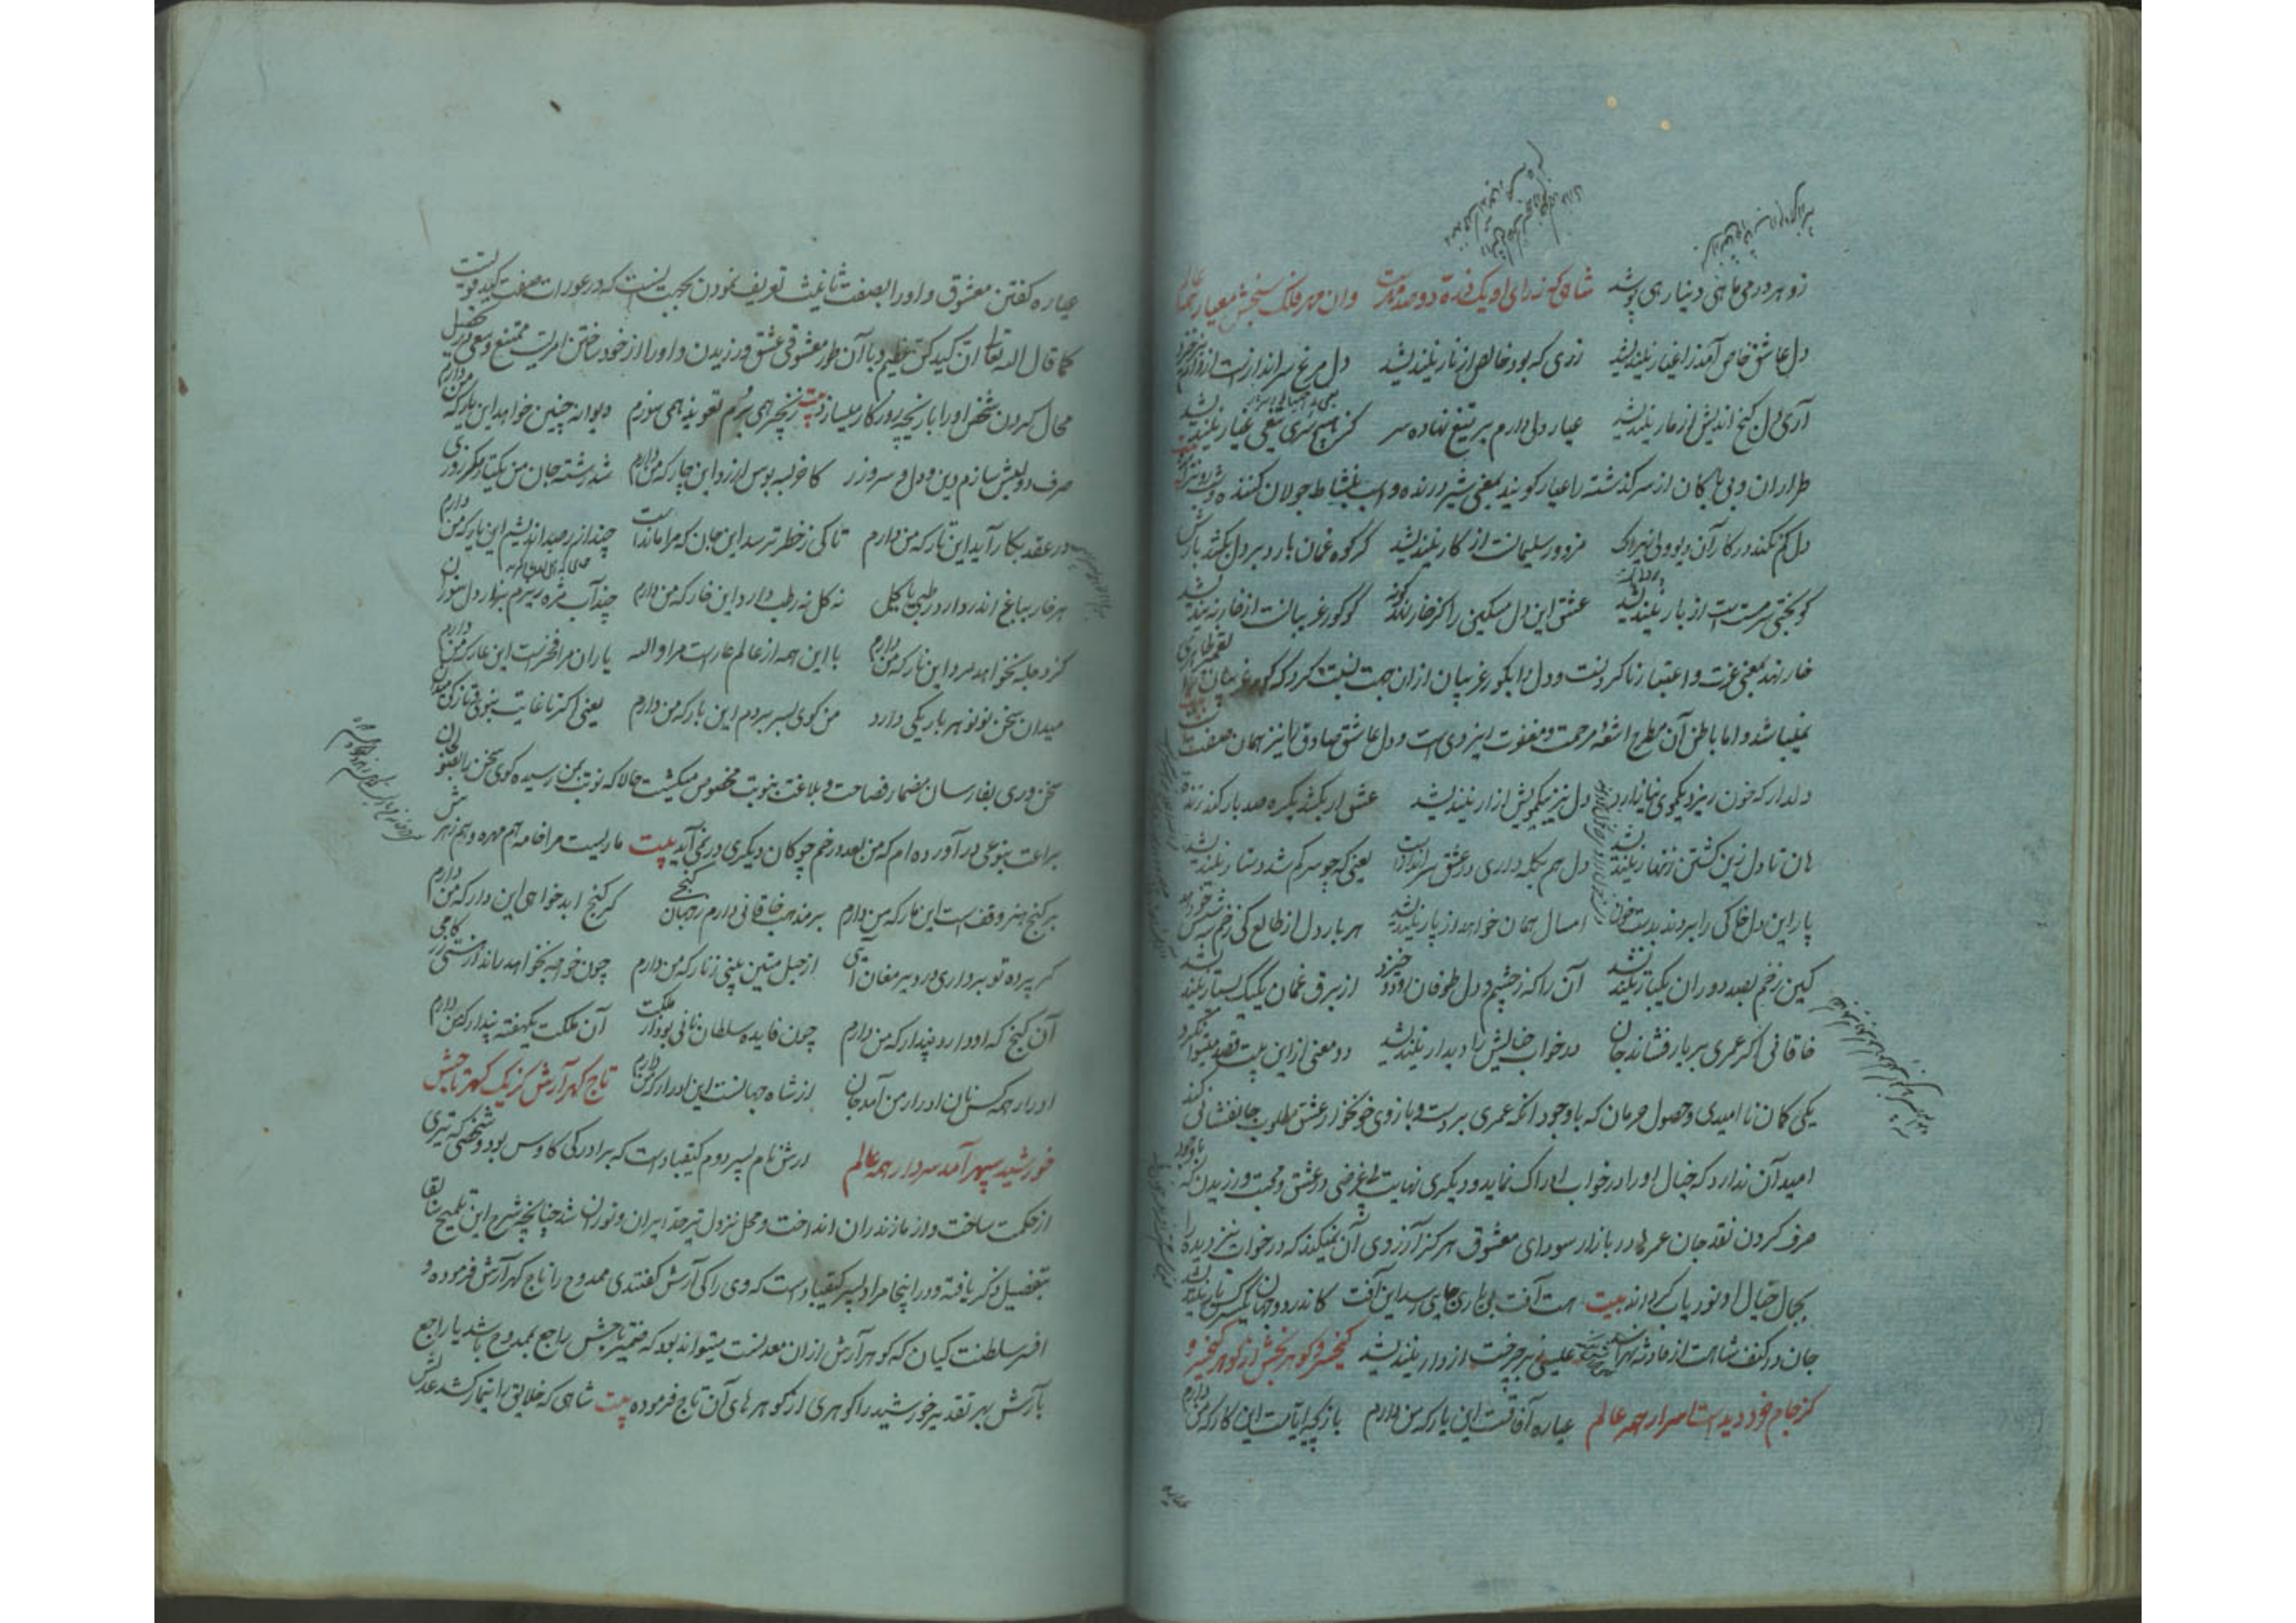 زو هر درمی ماهی دینار همی پوشد شاهی که ز رای او یک ذره دو صد مهر است وان مهر فلک سنجش معیار همه عالم
دل عاشق خاص آمد ز اغیار نیندیشد زری که بود خالص از نار نیندیشد دل مرغ سراندازست از دام
آری دل گنج اندیش از مار نیندیشد عیار دلی دارم بر تیغ نهاده سر کز هیچ سری یعنی عیار نیندیشد
طراران و بی باکان از سر گذشته را عیار گویند بمعنی شیر درنده و اسب بنشاط جولان کننده
دل کم نکند در کار آن دیو دلی زیراک مزدور سلیمانست از کار نیندیشد گر کوه غمان بارد بر دل بکشد بارش
کو بختی سرمست است از بار نیندیشد عشق این دل مسکین را کز خار نهد گونه گو گور غریبانست از خار نیندیشد
خار نهد بمعنی عزت و اعتبار ناکردنست و دل را بگور غریبان از آن جهت نسبت کرد که گور غریبان
نمیباشد و اما باطن آن مطرح اشعه مرحمت و مغفرت ایزدی است و دل عاشق صادق را نیز همان صفت است
دلدار که خون ریزد یکموی نیازارد دل نیز بیکمویش ز آزار نیندیشد عشق ار بکشد یکره صد بار کند زنده
هان تا دل ازین کشتن زنهار نیندیشد دل هم بکله داری در عشق سرانداز است یعنی که چو سر گم شد دستار نیندیشد
پار این دل خاکی را بردند بدست خون امسال همان خواهد از پار نیندیشد هر بار دل از طالع کی زخم شش
کین زخم بصد دوران یکبار نیندیشد آن را که ز چشم و دل طوفان دو دو خیزد از برق غمان یک یک بسیار نیندیشد
خاقانی اگر عمری بر یار فشاند جان در خواب خیالش را دیدار نیندیشد دو معنی ازین بیت قصد میتوان کرد
یکی کمان ناامیدی و حصول حرمان که با وجود آنکه عمری بر دست و بازوی خونخوار عشق مطلوب جانفشانی کند
امید آن ندارد که خیال او را در خواب ادراک نماید و دیگری نهایت بی غرضی در عشق و محبت ورزیدن که با وجود
صرف کردن نقد جان عمرها در بازار سودای معشوق هرگز آرزوی آن نمیکند که در خواب نیز دیده را
بجمال خیال او نورپاب گرداند بیت هست آفت بی یاری جایی رسد این آفت کاندر دو جهان یکسر کس یار نیندیشد
جان در کنف شاهست از حادثه نهراسد عیسی ز بر چرخست از دار نیندیشد کیخسرو گوهر بخش از گوهر کیخسرو
کز جام خرد دیدست اسرار همه عالم عیاره آفاقست این یار که من دارم بازیچه ایامست این کار که من دارم
عیاره گفتن معشوق و او را بصفت تانیث تعریف نمودن بجهت آنست که در عورات صفت کید قویست
کما قال الله تعالی ان کیدکن عظیم و با آن طور معشوقی عشق ورزیدن و او را از خود ساختن امریست ممتنع و سعی در تحصیل
محال کردن شخص او را بازیچه روزگار میسازد بیت زنجیر همی برم تعویذ همی سوزم دیوانه چنین خواهد این یار که من دارم
صرف دو لبش سازم دین و دل و سر و زر کاخر به بوس ارزد این چار که من دارم شد رشته جان من یکتار مگر روزی
در عقد بکار آید این تار که من دارم تا کی ز خطر ترسد این جان که مرا مانداست چند از رصد اندیشم این بار که من دارم
هر خار بباغ اندر دارد رطبی یا گل نه گل نه رطب دارد این خار که من دارم چند آب مژه ریزم بر نار دل سوزان
کز دجله نخواهد مرد این نار که من دارم با این همه از عالم عارست مرا والله یاران مرا فخرست این عار که من دارم
میدان سخن نو نو هر بار یکی دارد من گوی بسر بردم این بار که من دارم یعنی اگر تا غایت بنوبت تازگی میدان
سخن وری بفارسان مضمار فصاحت و بلاغت بنوبت مخصوص میگشت حالا که نوبت بمن رسیده گوی سخن را بصولجان
براعت بنوعی درآورده ام که من بعد در خم چوگان دیگری در نمی آید بیت ماریست مرا خامه هم مهره و هم زهرش
بر گنج هنر وقفست این مار که من دارم بر مذهب خاقانی دارم ز جهان گنجی گر گنج ابد خواهی این دار که من دارم
گر پرده تو برداری در دیر مغان آیی از حبل متین بینی زنار که من دارم چون خواجه نخواهد راند از هستی زر کامی
آن گنج که او دارد پندار که من دارم چون فایده سلطان نانی بود از ملکت آن ملکت یکهفته پندار که من دارم
ادرار همه کس نان ادرار من آمد جان از شاه جهانست این ادرار که من دارم تاج گهر آرش کز یک گهر تاجش
خورشید سپهر آمد سردار همه عالم آرش نام پسر دوم کیقباد است که برادر کی کاوس بود و شخصی که تیری
از حکمت ساخت و از مازندران انداخت و محل نزول تیر حد ایران و توران شد چنانچه شرح این تلمیح سابقا
بتفصیل ذکر یافته و در اینجا مراد پسر کیقباد است که وی را کی آرش گفتندی ممدوح را تاج گهر آرش فرموده و
افسر سلطنت کیان که گوهر آرش از آن معدنست میتواند بود که ضمیر تاجش راجع بممدوح باشد یا راجع
بآرش بهر تقدیر خورشید را گوهری از گوهرهای آن تاج فرموده بیت شاهی که خلایق را تیمار کشد عدلش